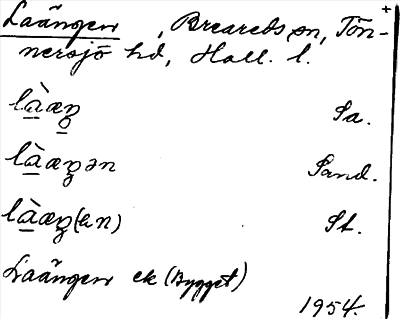 Laängen, Breareds sn, Tön-
nersjö hd, Hall. l.
là̱æŋ̱ Sa.
là̱æŋən Sand.
là̱æŋ(ən) St.
Laängen ek (Bygget)
1954.